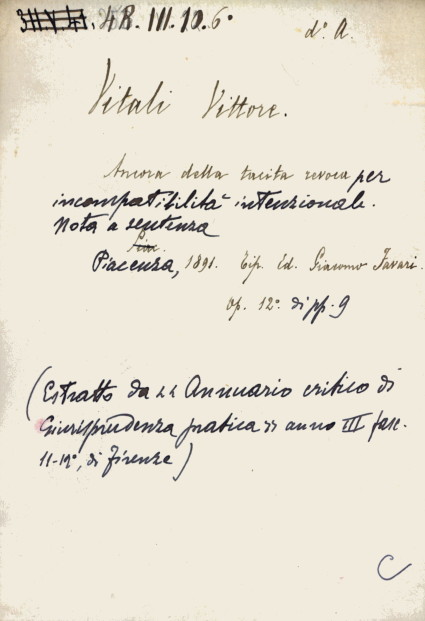 48. III. 10. 6° d°. A.
Vitali Vittore.
Ancora della tacita revoca per
incompatibilità intenzionale.
Nota a sentenza
Piacenza, 1891. Tip. Ed. Giacomo Favari.
Op. 12°. di pp. 9
(Estratto da "Annuario critico di
Giurisprudenza pratica" anno III fasc.
11-12°, di Firenze)
C